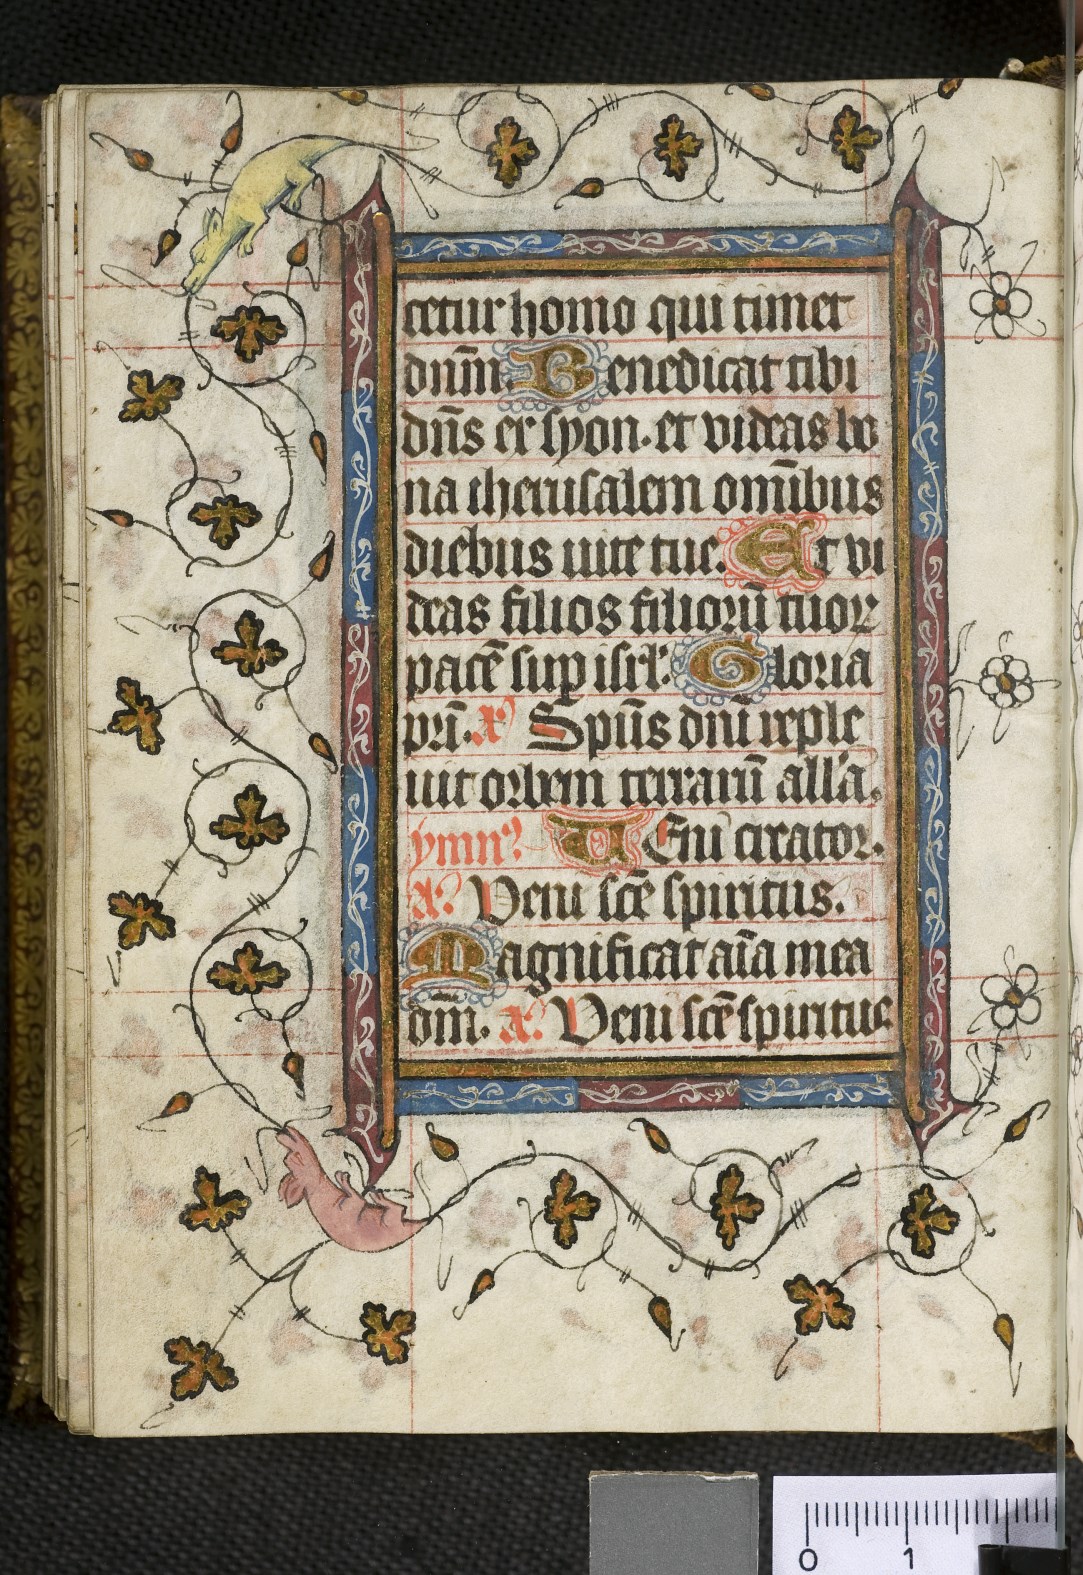 cetur homo qui timet
dn̄m. Benedicat tibi
dn̄s ex syon. et videas bo
na iherusalem omībus
diebus uite tue. Et vi
deas filios filiorū tuoꝝ
pacē sup isrl'. Gloria
pr̄i. aͬ Spūs dn̄i reple
uit orbem terrarū all'a.
ymnꝰ UEni creator.
a᷒ Veni scē spiritus.
Magnificat aīa mea
dm̄. a᷒ Veni scē spiritus
0 1